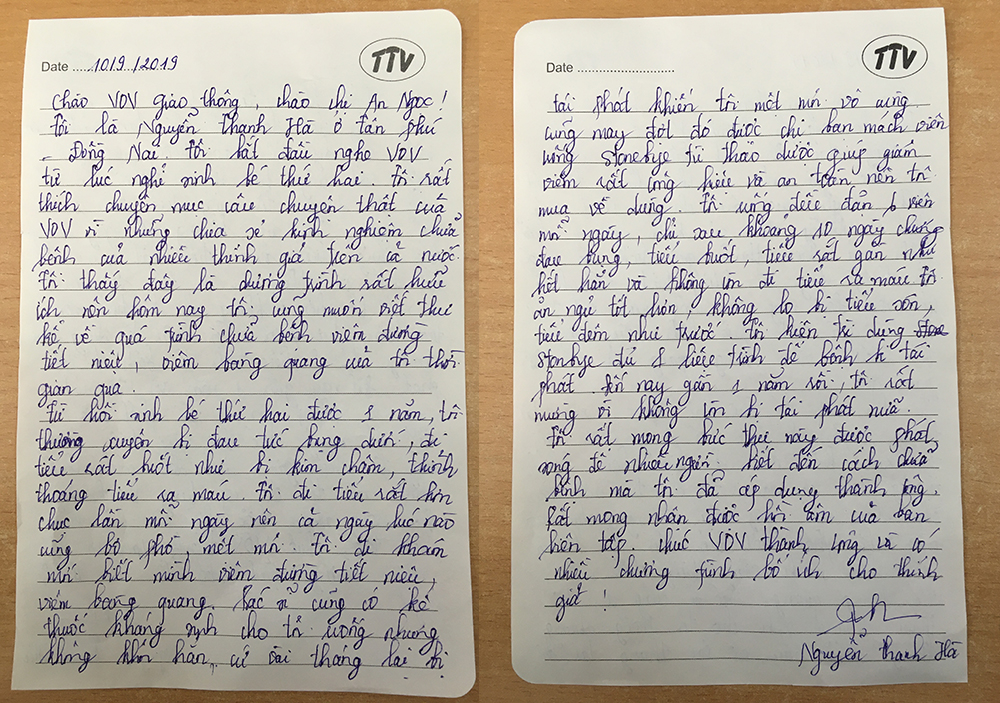 TTV
Date ....10/9../2019
Chào VOV giao thông, chào chị An Ngọc!
Tôi là Nguyễn Thanh Hà ở Tân Phú
- Đồng Nai. Tôi bắt đầu nghe VOV
từ lúc nghỉ sinh bé thứ hai. Tôi rất
thích chuyên mục câu chuyện thật của
VOV vì những chia sẻ kinh nghiệm chữa
bệnh của nhiều thính giả trên cả nước.
Tôi thấy đây là chương trình rất hữu
ích nên hôm nay tôi cũng muốn viết thư
kể về quá trình chữa bệnh viêm đường
tiết niệu, viêm bàng quang của tôi thời
gian qua.
Từ hồi sinh bé thứ hai được 1 năm, tôi
thường xuyên bị đau tức bụng dưới, đi
tiểu rất buốt như bị kim châm, thỉnh
thoảng tiểu ra máu. Tôi đi tiểu rất hơn
chục lần mỗi ngày nên cả ngày lúc nào
cũng bơ phờ, mệt mỏi. Tôi đi khám
mới biết mình viêm đường tiết niệu,
viêm bàng quang. Bác sĩ cũng có kê
thuốc kháng sinh cho tôi uống nhưng
không khỏi hẳn, cứ vài tháng lại bị
TTV
Date ..............................
tái phát khiến tôi mệt mỏi vô cùng.
Cũng may đợt đó được chị bạn mách viên
uống Stonebye từ thảo dược giúp giảm
viêm rất công hiệu và an toàn nên tôi
mua về dùng. Tôi uống đều đặn 6 viên
mỗi ngày, chỉ sau khoảng 10 ngày chứng
đau bụng, tiểu buốt, tiểu rắt gần như
hết hẳn và không còn đi tiểu ra máu. Tôi
ăn ngủ tốt hơn, không lo bị tiểu són,
tiểu đêm như trước. Tôi kiên trì dùng
Stonebye đủ 1 liệu trình để bệnh k tái
phát. Đến nay gần 1 năm rồi, tôi rất
mừng vì không còn bị tái phát nữa.
Tôi rất mong bức thư này được phát
sóng để nhiều người biết đến cách chữa
bệnh mà tôi đã áp dụng thành công.
Rất mong nhận được hồi âm của ban
biên tập. Chúc VOV thành công và có
nhiều chương trình bổ ích cho thính
giả!
Nguyễn Thanh Hà